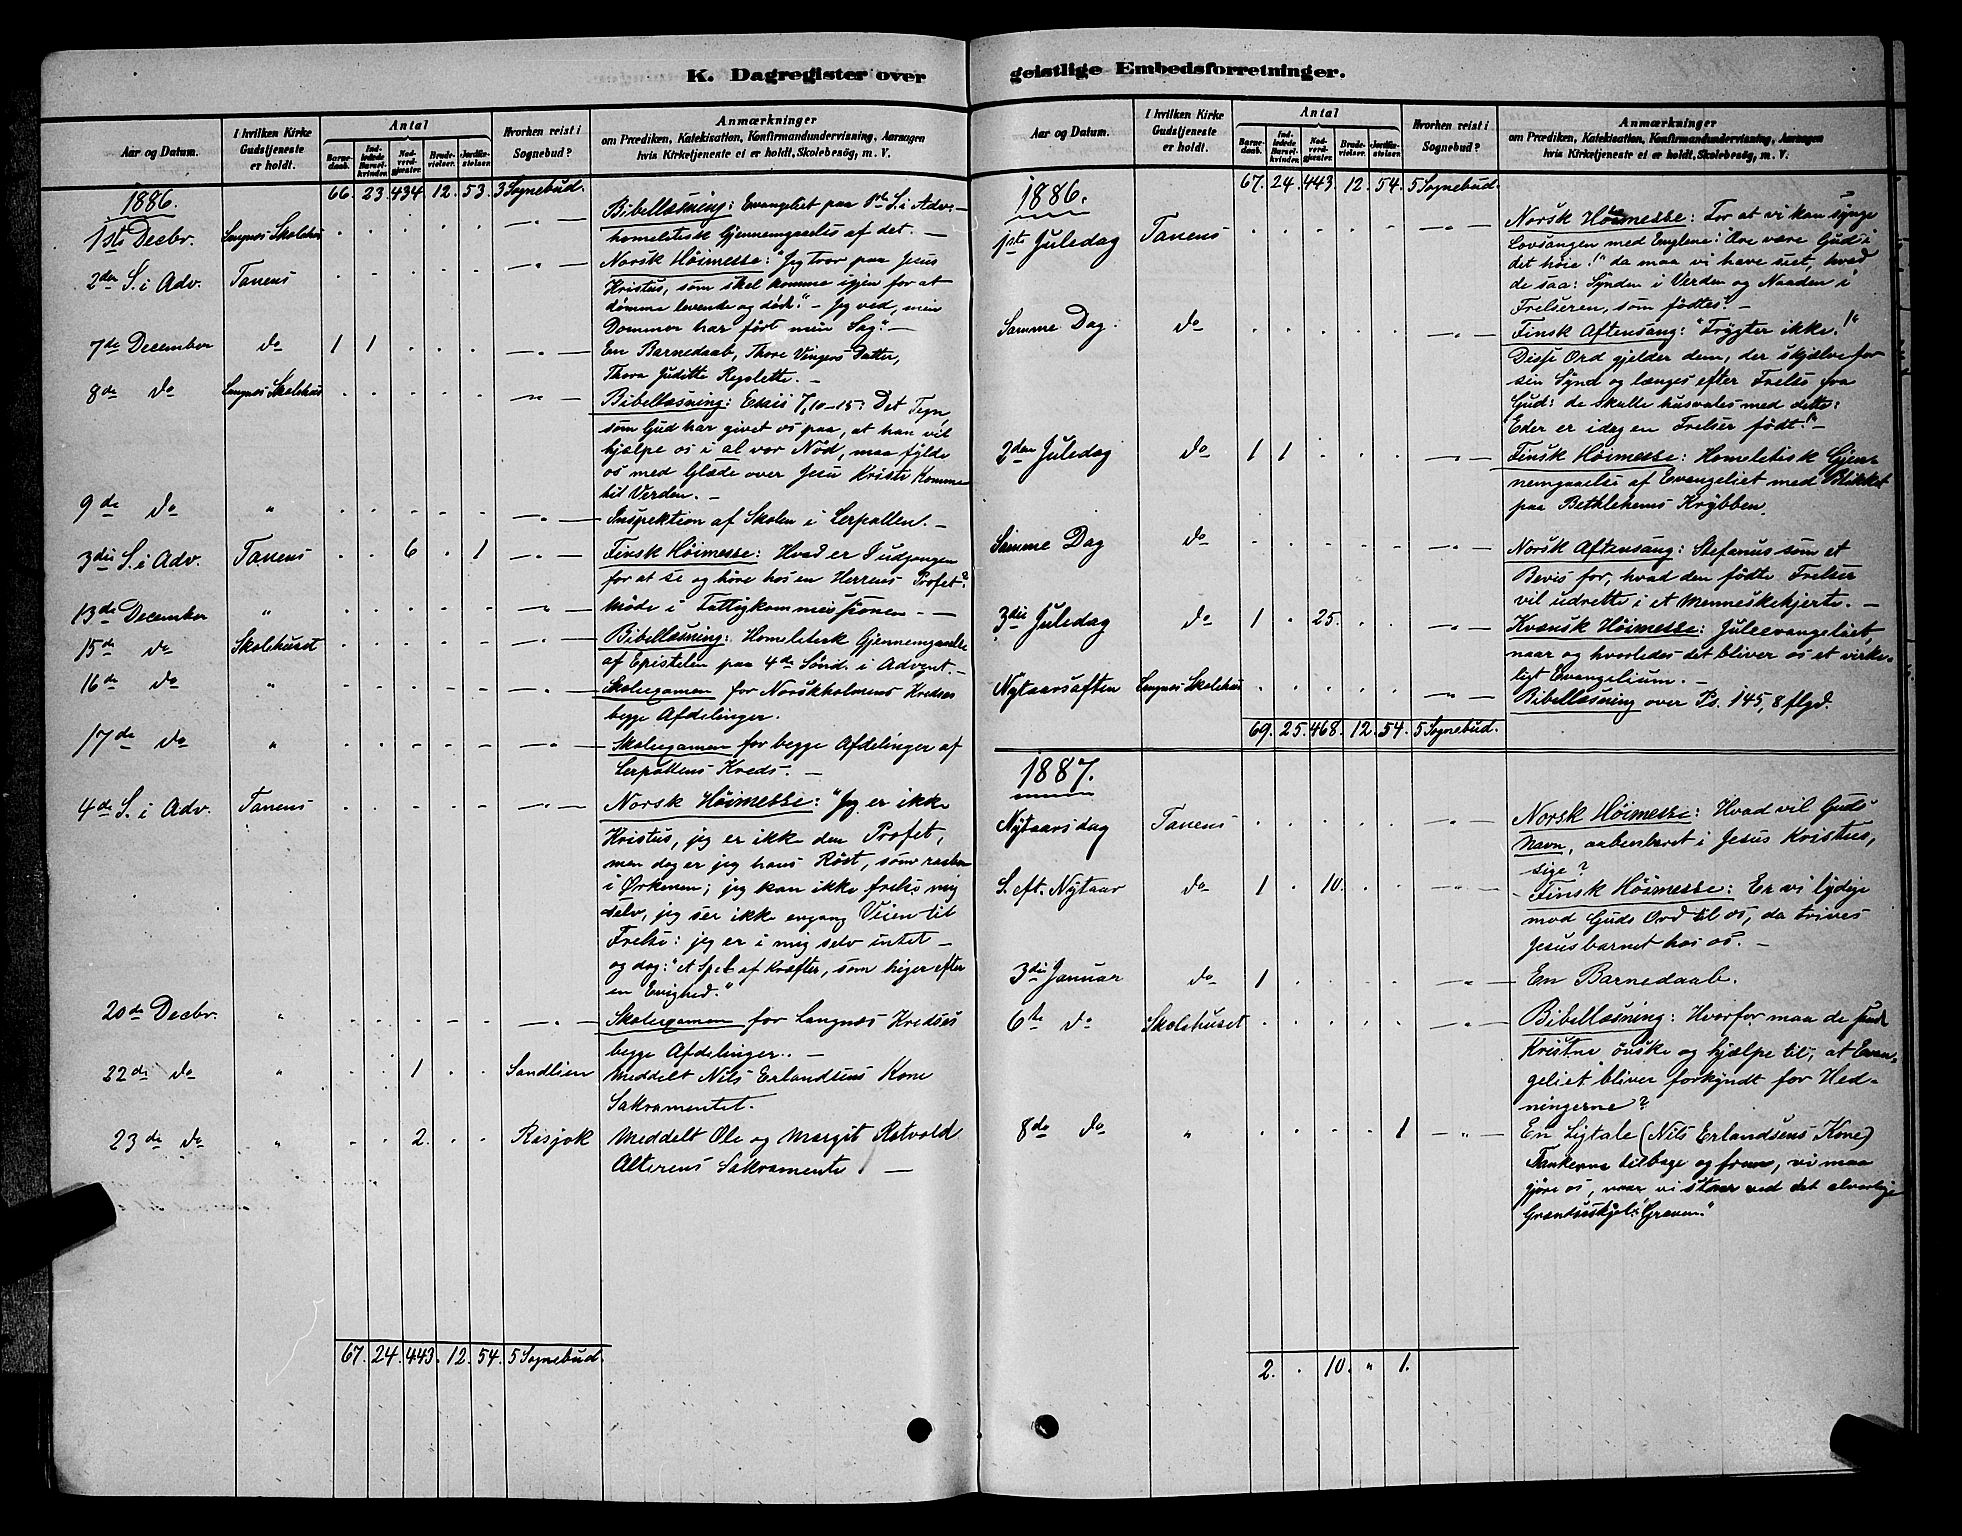 K. Dagregister over
Aar og Datum.
I hvilken Kirke Gudstjeneste er holdt.
Antal
Barnedaab.
Indledede Barselkvinder.
Nadverdgjæster.
Brudevielser.
Jordfæstelser.
Hvorhen reist i Sognebud?
Anmærkninger
om Prædiken, Katekisation, Konfirmandundervisning, Aarsagen
hvis Kirketjeneste ei er holdt, Skolebesög, m. V.
1886. 66. 23. 434 12. 53. 3 Sognebud.
1ste Decbr. Langnes Skolehus Bibellæsning: Evangeliet paa S. i Adv. —
homeletisk Gjennemgaaelse af det. —
2den S. i Adv. Tanens Norsk Höimesse: "Jeg tror paa Jesus
Kristus, som skal komme igjen for at
dömme levende og döde." — Jeg ved, min
Dommer har fört min Sag." —
7de December do 1 1 En Barnedaab, Thore Vingers Datter,
Thora Juditte Regolette. —
8de do Langnes Skolehus Bibellæsning: Esais 7, 10–15: Det Tegn,
som Gud har givet os paa, at han vil
hjælpe os i al vor Nöd, maa fylde
os med Glæde over Jesu Kristi Komme
til Verden. —
9de do " Inspektion af Skolen i Lerpollen. —
3die S. i Adv. Tanens 6 1 Finsk Höimesse: Hvad er I udgangen
for at se og höre hos en Herrens Profet?
13de December " Möde i Fattigkommissionen. —
15de do Skolehuset Bibellæsning: Homeletisk Gjennemgaaelse
af Epistelen paa 4de Sönd. i Advent. —
16de do " Skoleexamen for Norskholmens Kredses
begge Afdelinger.
17de do " Skoleexamen for begge Afdelinger af
Lerpollens Kreds. —
4de S. i Adv. Tanens Norsk Höimesse: "Jeg er ikke
Kristus, jeg er ikke den Profet,
men dog er jeg hans Röst, som raaber
i Ørkenen; jeg kan ikke frelse mig
selv, jeg ser ikke engang Veien til
Frelse: jeg er i mig selv intet —
og dog: "et Spil af Kræfter, som higer efter
en Evighed."
20de Decbr. " Skoleexamen for Langnæs Kredses
begge Afdelinger. —
22de do " 1 Sandlien Meddelt Nils Erlandsens Kone
Sakramentet.
23de do " 2. Risjok Meddelt Ole og Margit Ratvold
Alterens Sakramente —
67. 24. 443. 12. 54. 5 Sognebud.
geistlige Embedsforretninger.
Aar og Datum.
I hvilken Kirke Gudstjeneste er holdt.
Antal
Barnedaab.
Indledede Barselkvinder.
Nadverdgjæster.
Brudevielser.
Jordfæstelser.
Hvorhen reist i Sognebud?
Anmærkninger
om Prædiken, Katekisation, Konfirmandundervisning, Aarsagen
hvis Kirketjeneste ei er holdt, Skolebesög, m. V.
1886. 67. 24. 443. 12. 54. 5 Sognebud.
1ste Juledag Tanens Norsk Höimesse: For at vi kan synge
Lovsangen med Englene: "Ære være Gud i
det höie!" da maa vi have seet, hvad
de saa: Synden i Verden og Naaden i
Frelseren, som födtes —
Samme Dag. do Finsk Aftensang: "Frygter ikke!"
Disse Ord gjelder dem, der skjælve for
sin Synd og længes efter Frelse fra
Gud: de skulle husvales med dette:
Eder er idag en Frelser födt". —
2den Juledag do 1 1 Finsk Höimesse: Homeletisk Gjen-
nemgaaelse af Evangeliet med Blikket
paa Bethlehems Krybben.
Samme Dag do Norsk Aftensang: Stefanus som et
Bevis for, hvad den födte Frelser
vil udrette i et Menneskehjerte. —
3die Juledag do 1 25. Kvænsk Höimesse: Juleevangeliet,
naar og hvorledes det bliver os et virke-
ligt Evangelium. —
Nytaarsaften Langnes Skolehus Bibellæsning over Ps. 145, 8 flgd.
69. 25. 468. 12. 54. 5 Sognebud.
1887.
Nytaarsdag Tanens Norsk Höimesse: Hvad vil Guds
Navn, aabenbaret i Jesus Kristus,
sige?
S. eft. Nytaar do 1 10. Finsk Höimesse: Er vi lydige
mod Guds Ord til os, da trives
Jesusbarnet hos os. —
3die Januar do 1 En Barnedaab.
6te do Skolehuset Bibellæsning: Hvorfor maa de
Kristne önske og hjælpe til, at Evan-
geliet bliver forkyndt for Hed-
ningerne?
8de do " 1 En Ligtale (Nils Erlandsens Kone)
Tankerne tilbage og frem, vi maa
gjöre os, naar vi staar ved det alvorlige
Grændseskjel: Graven."
2. 10. " 1.